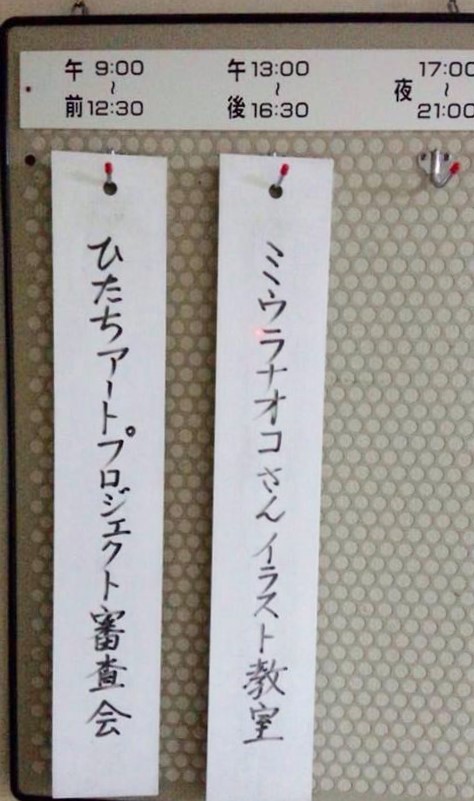 午前 9:00～12:30
午後 13:00～16:30
夜 17:00～21:00
ひたちアートプロジェクト審査会
ミウラナオコさんイラスト教室